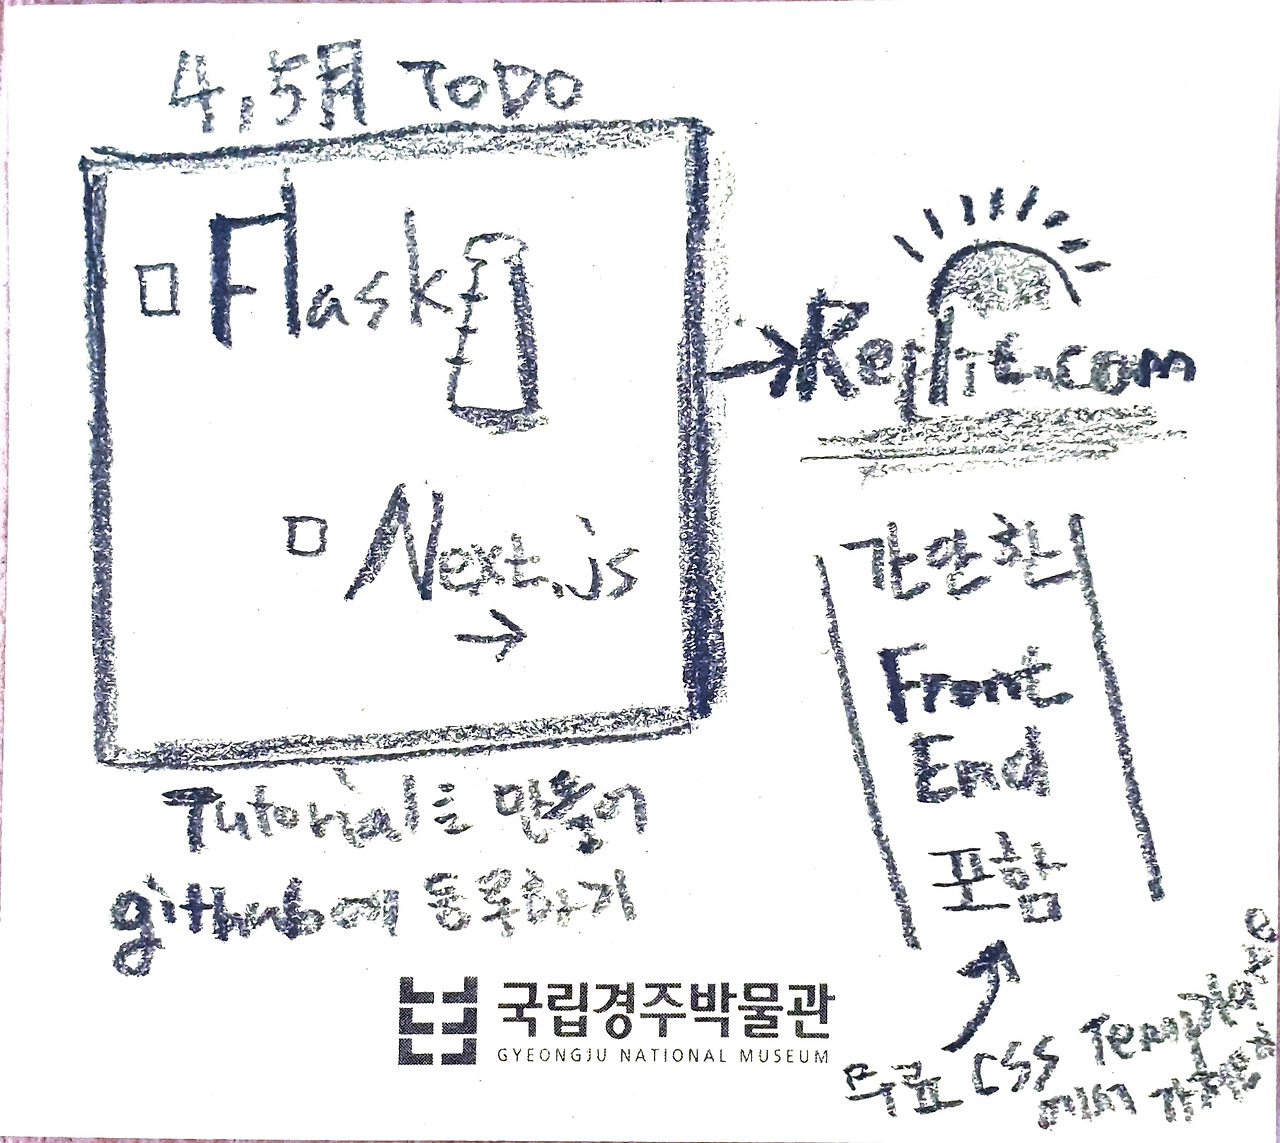 4,5月 ToDo
Flask
Next.js
→
Tutorial을 만들어
github에 등록하기
→ Replit.com
간단한
Front
End
포함
무료 CSS Template
국립경주박물관
GYEONGJU NATIONAL MUSEUM